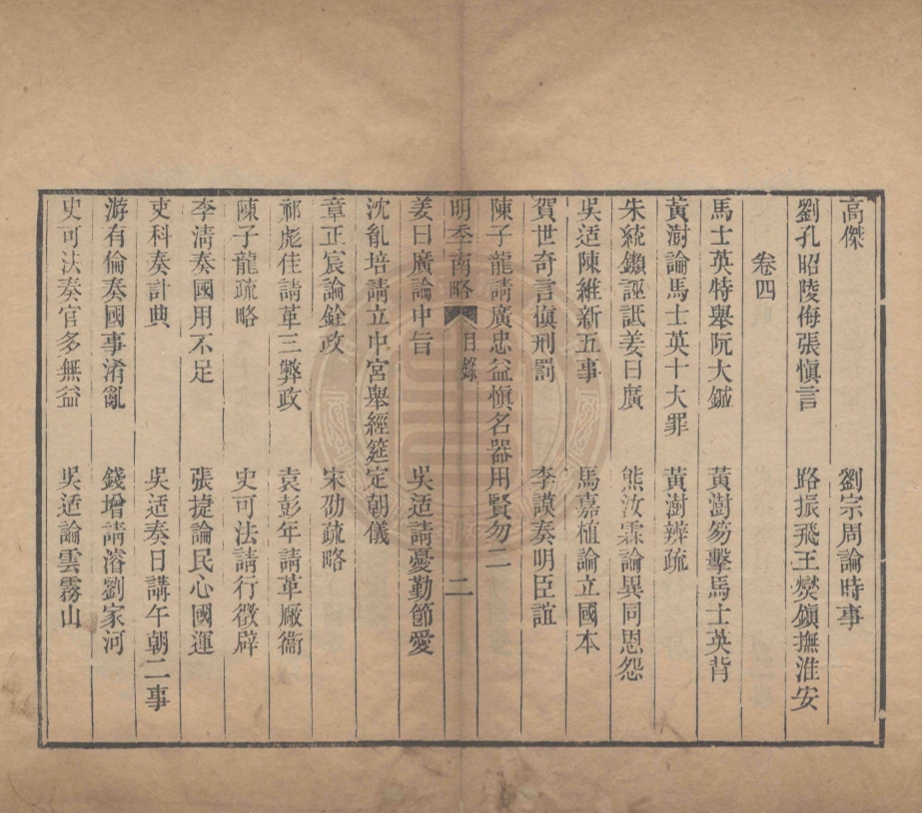 高傑　劉宗周論時事
劉孔昭陵侮張愼言　路振飛王燮鎮撫淮安
卷四
馬士英特舉阮大鋮　黃澍笏擊馬士英背
黃澍論馬士英十大罪　黃澍辨疏
朱統䥧誣詆姜曰廣　熊汝霖論異同恩怨
吳适陳維新五事　馬嘉植論立國本
賀世奇言愼刑罰　李謨奏明臣誼
陳子龍請廣忠益愼名器用賢勿二
明季南略　目錄　二
姜曰廣論中旨　吳适請憂勤節愛
沈胤培請立中宮舉經筵定朝儀
章正宸論銓政　宋劼疏略
祁彪佳請革三弊政　袁彭年請革厰衞
陳子龍疏略　史可法請行徵辟
李清奏國用不足　張捷論民心國運
吏科奏計典　吳适奏日講午朝二事
游有倫奏國事淆亂　錢增請濬劉家河
史可法奏官多無益　吳适論雲霧山